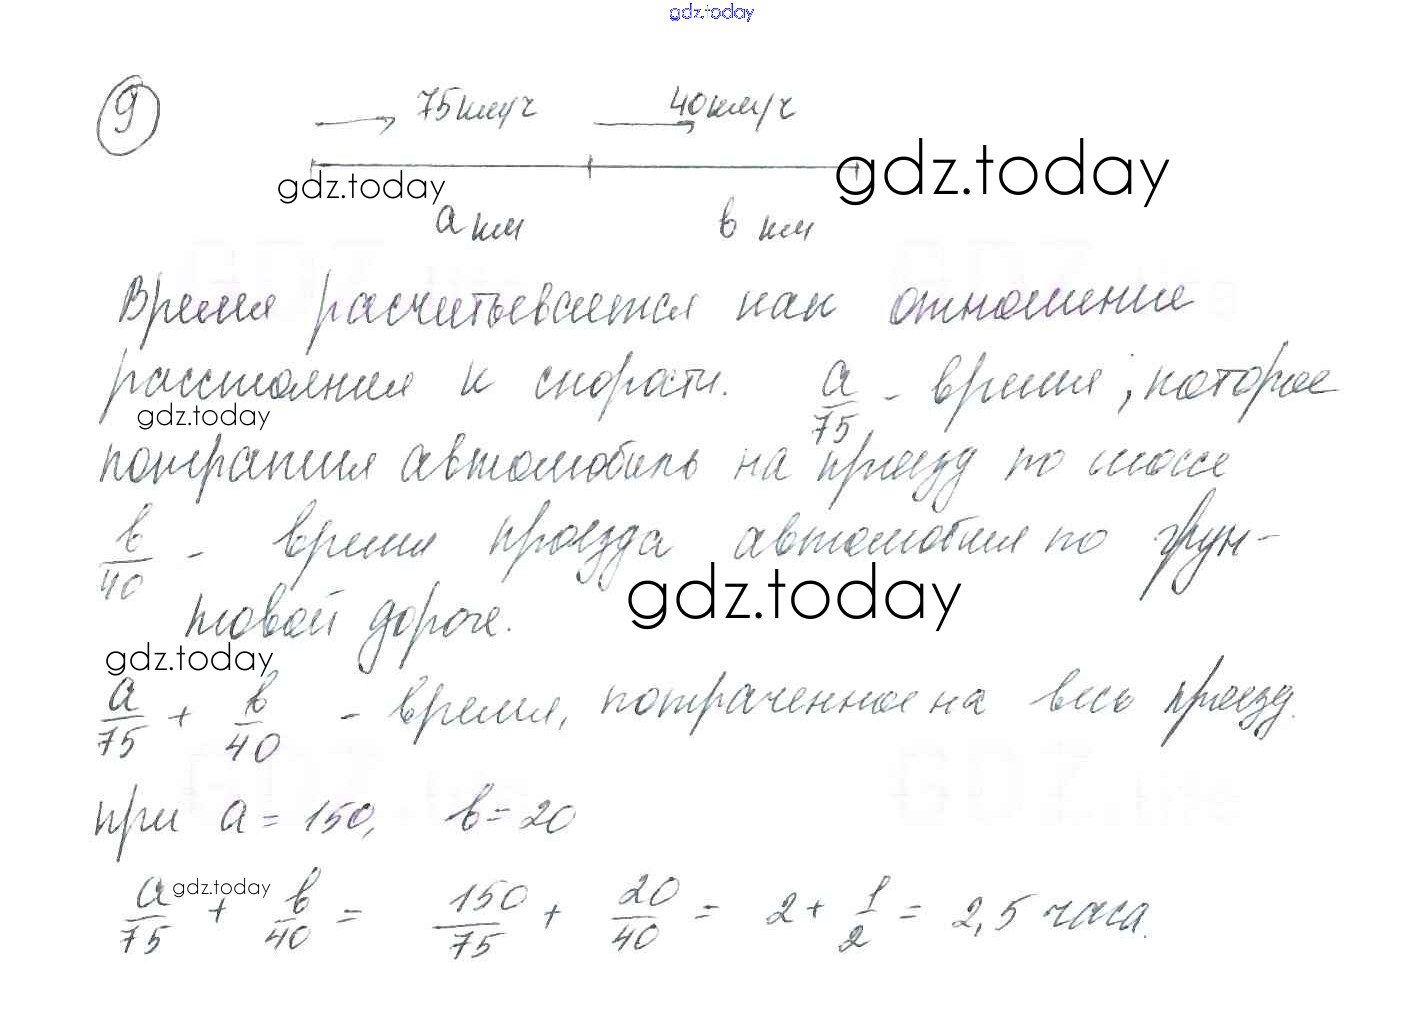 gdz.today
9
75км/ч 40км/ч
gdz.today
gdz.today
а км в км
Время расчитывается как отношение
расстояния к скорости. а/75 - время, которое
gdz.today
потратил автомобиль на проезд по шоссе
в/40 - время проезда автомобиля по грун-
gdz.today
товой дороге.
gdz.today
а/75 + в/40 - время, потраченное на весь проезд.
при а = 150, в = 20
gdz.today
а/75 + в/40 = 150/75 + 20/40 = 2 + 1/2 = 2,5 часа.